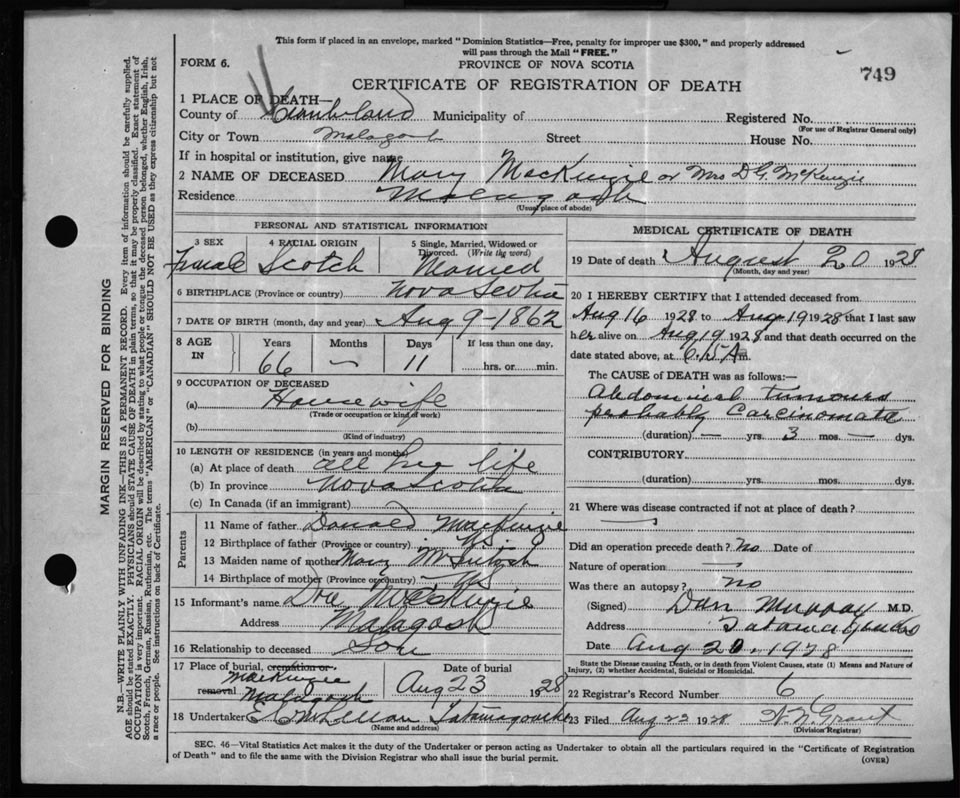 This form if placed in an envelope, marked "Dominion Statistics—Free, penalty for improper use $300," and properly addressed
will pass through the Mail "FREE."
FORM 6.
PROVINCE OF NOVA SCOTIA
749
CERTIFICATE OF REGISTRATION OF DEATH
1 PLACE OF DEATH—
County of Cumberland Municipality of Registered No.
(For use of Registrar General only)
City or Town Malagash Street House No.
If in hospital or institution, give name
2 NAME OF DECEASED Mary MacKenzie or Mrs D G. McKenzie
Residence Malagash
(Usual place of abode)
PERSONAL AND STATISTICAL INFORMATION
3 SEX 4 RACIAL ORIGIN 5 Single, Married, Widowed or Divorced. (Write the word)
Female Scotch Married
6 BIRTHPLACE (Province or country) Nova Scotia
7 DATE OF BIRTH (month, day and year) Aug 9 - 1862
8 AGE IN Years Months Days If less than one day,
66 — 11 hrs. or min.
9 OCCUPATION OF DECEASED
(a) Housewife
(Trade or occupation or kind of work)
(b)
(Kind of industry)
10 LENGTH OF RESIDENCE (in years and months)
(a) At place of death all her life
(b) In province Nova Scotia
(c) In Canada (if an immigrant)
Parents
11 Name of father Donald MacKenzie
12 Birthplace of father (Province or country) N.S.
13 Maiden name of mother Mary McIntosh
14 Birthplace of mother (Province or country) N.S.
15 Informant's name McKenzie
Address Malagash
16 Relationship to deceased Son
17 Place of burial, cremation or removal Date of burial
MacKenzie
Malagash Aug 23 1928
18 Undertaker McLellan Tatamagouche
(Name and address)
MEDICAL CERTIFICATE OF DEATH
19 Date of death August 20 1928
(Month, day and year)
20 I HEREBY CERTIFY that I attended deceased from
Aug 16 1928 to Aug 19 1928 that I last saw
her alive on Aug 19 1928, and that death occurred on the
date stated above, at A m.
The CAUSE of DEATH was as follows:—
Abdominal tumours
probably Carcinomata
(duration) — yrs. 3 mos. — dys.
CONTRIBUTORY.
(duration) yrs. mos. dys.
21 Where was disease contracted if not at place of death?
Did an operation precede death? No Date of
Nature of operation —
Was there an autopsy? No
(Signed) Dan Murray M.D.
Address Tatamagouche
Date Aug 20, 1928
State the Disease causing Death, or in death from Violent Causes, state (1) Means and Nature of
Injury, (2) whether Accidental, Suicidal or Homicidal.
22 Registrar's Record Number 6
23 Filed Aug 22 1928 Grant
(Division Registrar)
SEC. 46—Vital Statistics Act makes it the duty of the Undertaker or person acting as Undertaker to obtain all the particulars required in the "Certificate of Registration
of Death" and to file the same with the Division Registrar who shall issue the burial permit.
(OVER)
MARGIN RESERVED FOR BINDING
N.B.—WRITE PLAINLY WITH UNFADING INK—THIS IS A PERMANENT RECORD. Every item of information should be carefully supplied.
AGE should be stated EXACTLY. PHYSICIANS should STATE CAUSE OF DEATH in plain terms, so that it may be properly classified. Exact statement of
OCCUPATION is very important. RACIAL ORIGIN will be described by stating to what people or tongue the deceased person belonged, whether English, Irish,
Scotch, French, German, Russian, Ruthenian, etc. The terms "AMERICAN" or "CANADIAN" SHOULD NOT BE USED as they express citizenship but not
a race or people. See instructions on back of Certificate.